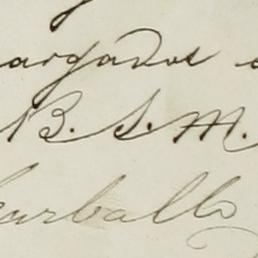 argados
B. S. M.
Carballo